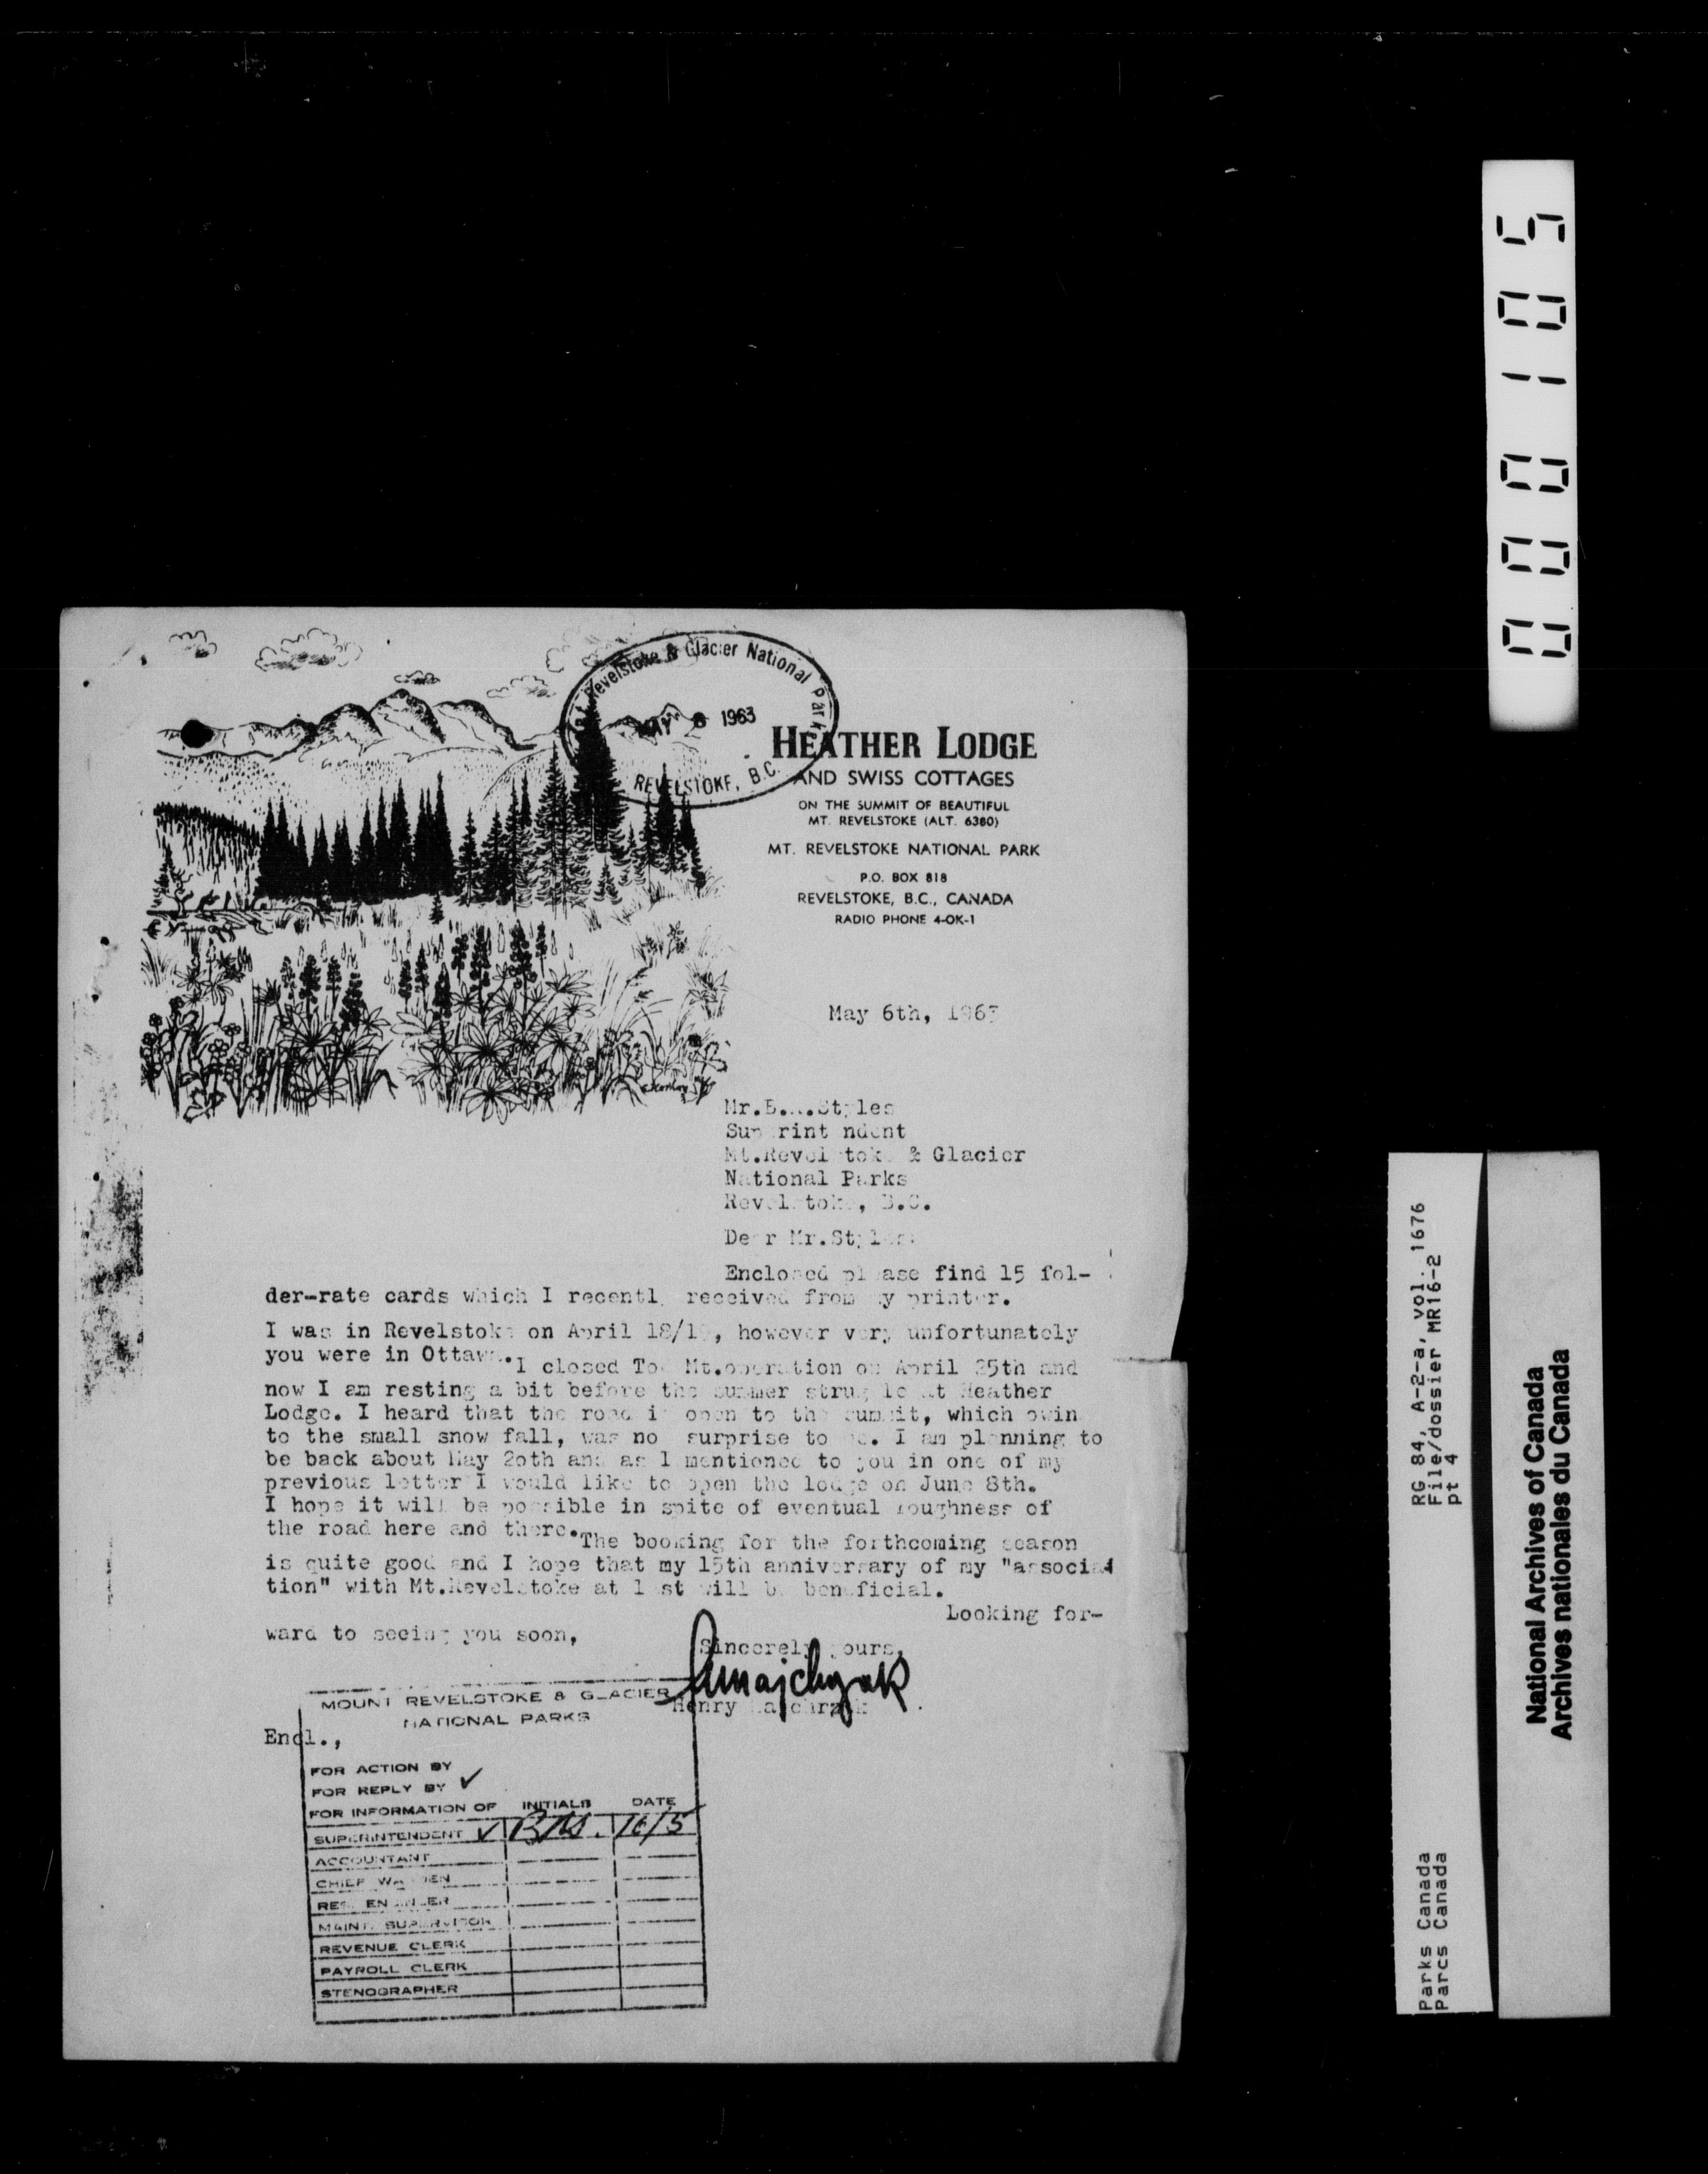 Mt. Revelstoke & Glacier National Park
MAY 8 1963
REVELSTOKE, B.C.
HEATHER LODGE
AND SWISS COTTAGES
ON THE SUMMIT OF BEAUTIFUL
MT. REVELSTOKE (ALT. 6380)
MT. REVELSTOKE NATIONAL PARK
P.O. BOX 818
REVELSTOKE, B.C., CANADA
RADIO PHONE 4-OK-1
May 6th, 1963
Mr. Styles
Superintendent
Mt.Revelstoke & Glacier
National Parks
Revelstoke, B.C.
Dear Mr.Styles:
Enclosed please find 15 fol-
der-rate cards which I recently received from my printer.
I was in Revelstoke on April 18/19, however very unfortunately
you were in Ottawa. I closed Tod Mt.operation on April 25th and
now I am resting a bit before the summer struggle at Heather
Lodge. I heard that the road is open to the summit, which owing
to the small snow fall, was no surprise to me. I am planning to
be back about May 20th and as I mentioned to you in one of my
previous letter I would like to open the lodge on June 8th.
I hope it will be possible in spite of eventual roughness of
the road here and there. The booking for the forthcoming season
is quite good and I hope that my 15th anniversary of my "associa
tion" with Mt.Revelstoke at last will be beneficial.
Looking for-
ward to seeing you soon,
Sincerely yours,
Henry Majchrzak
Encl.,
MOUNT REVELSTOKE & GLACIER
NATIONAL PARKS
FOR ACTION BY
FOR REPLY BY ✓
FOR INFORMATION OF INITIALS DATE
SUPERINTENDENT ✓ 16/5
ACCOUNTANT
CHIEF WARDEN
RES. ENGINEER
MAINT. SUPERVISOR
REVENUE CLERK
PAYROLL CLERK
STENOGRAPHER
000105
RG 84, A-2-a, vol. 1676
File/dossier MR16-2
pt 4
Parks Canada
Parcs Canada
National Archives of Canada
Archives nationales du Canada